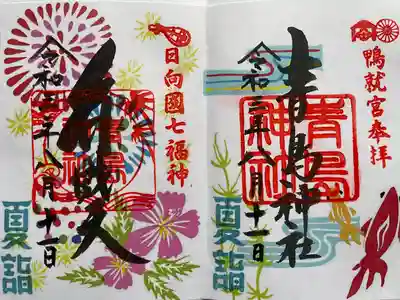 鴨就宮奉拝
青島神社
令和三年八月十一日
青島
神社
夏詣
日向國七福神
弁財天
令和三年八月十一日
夏詣